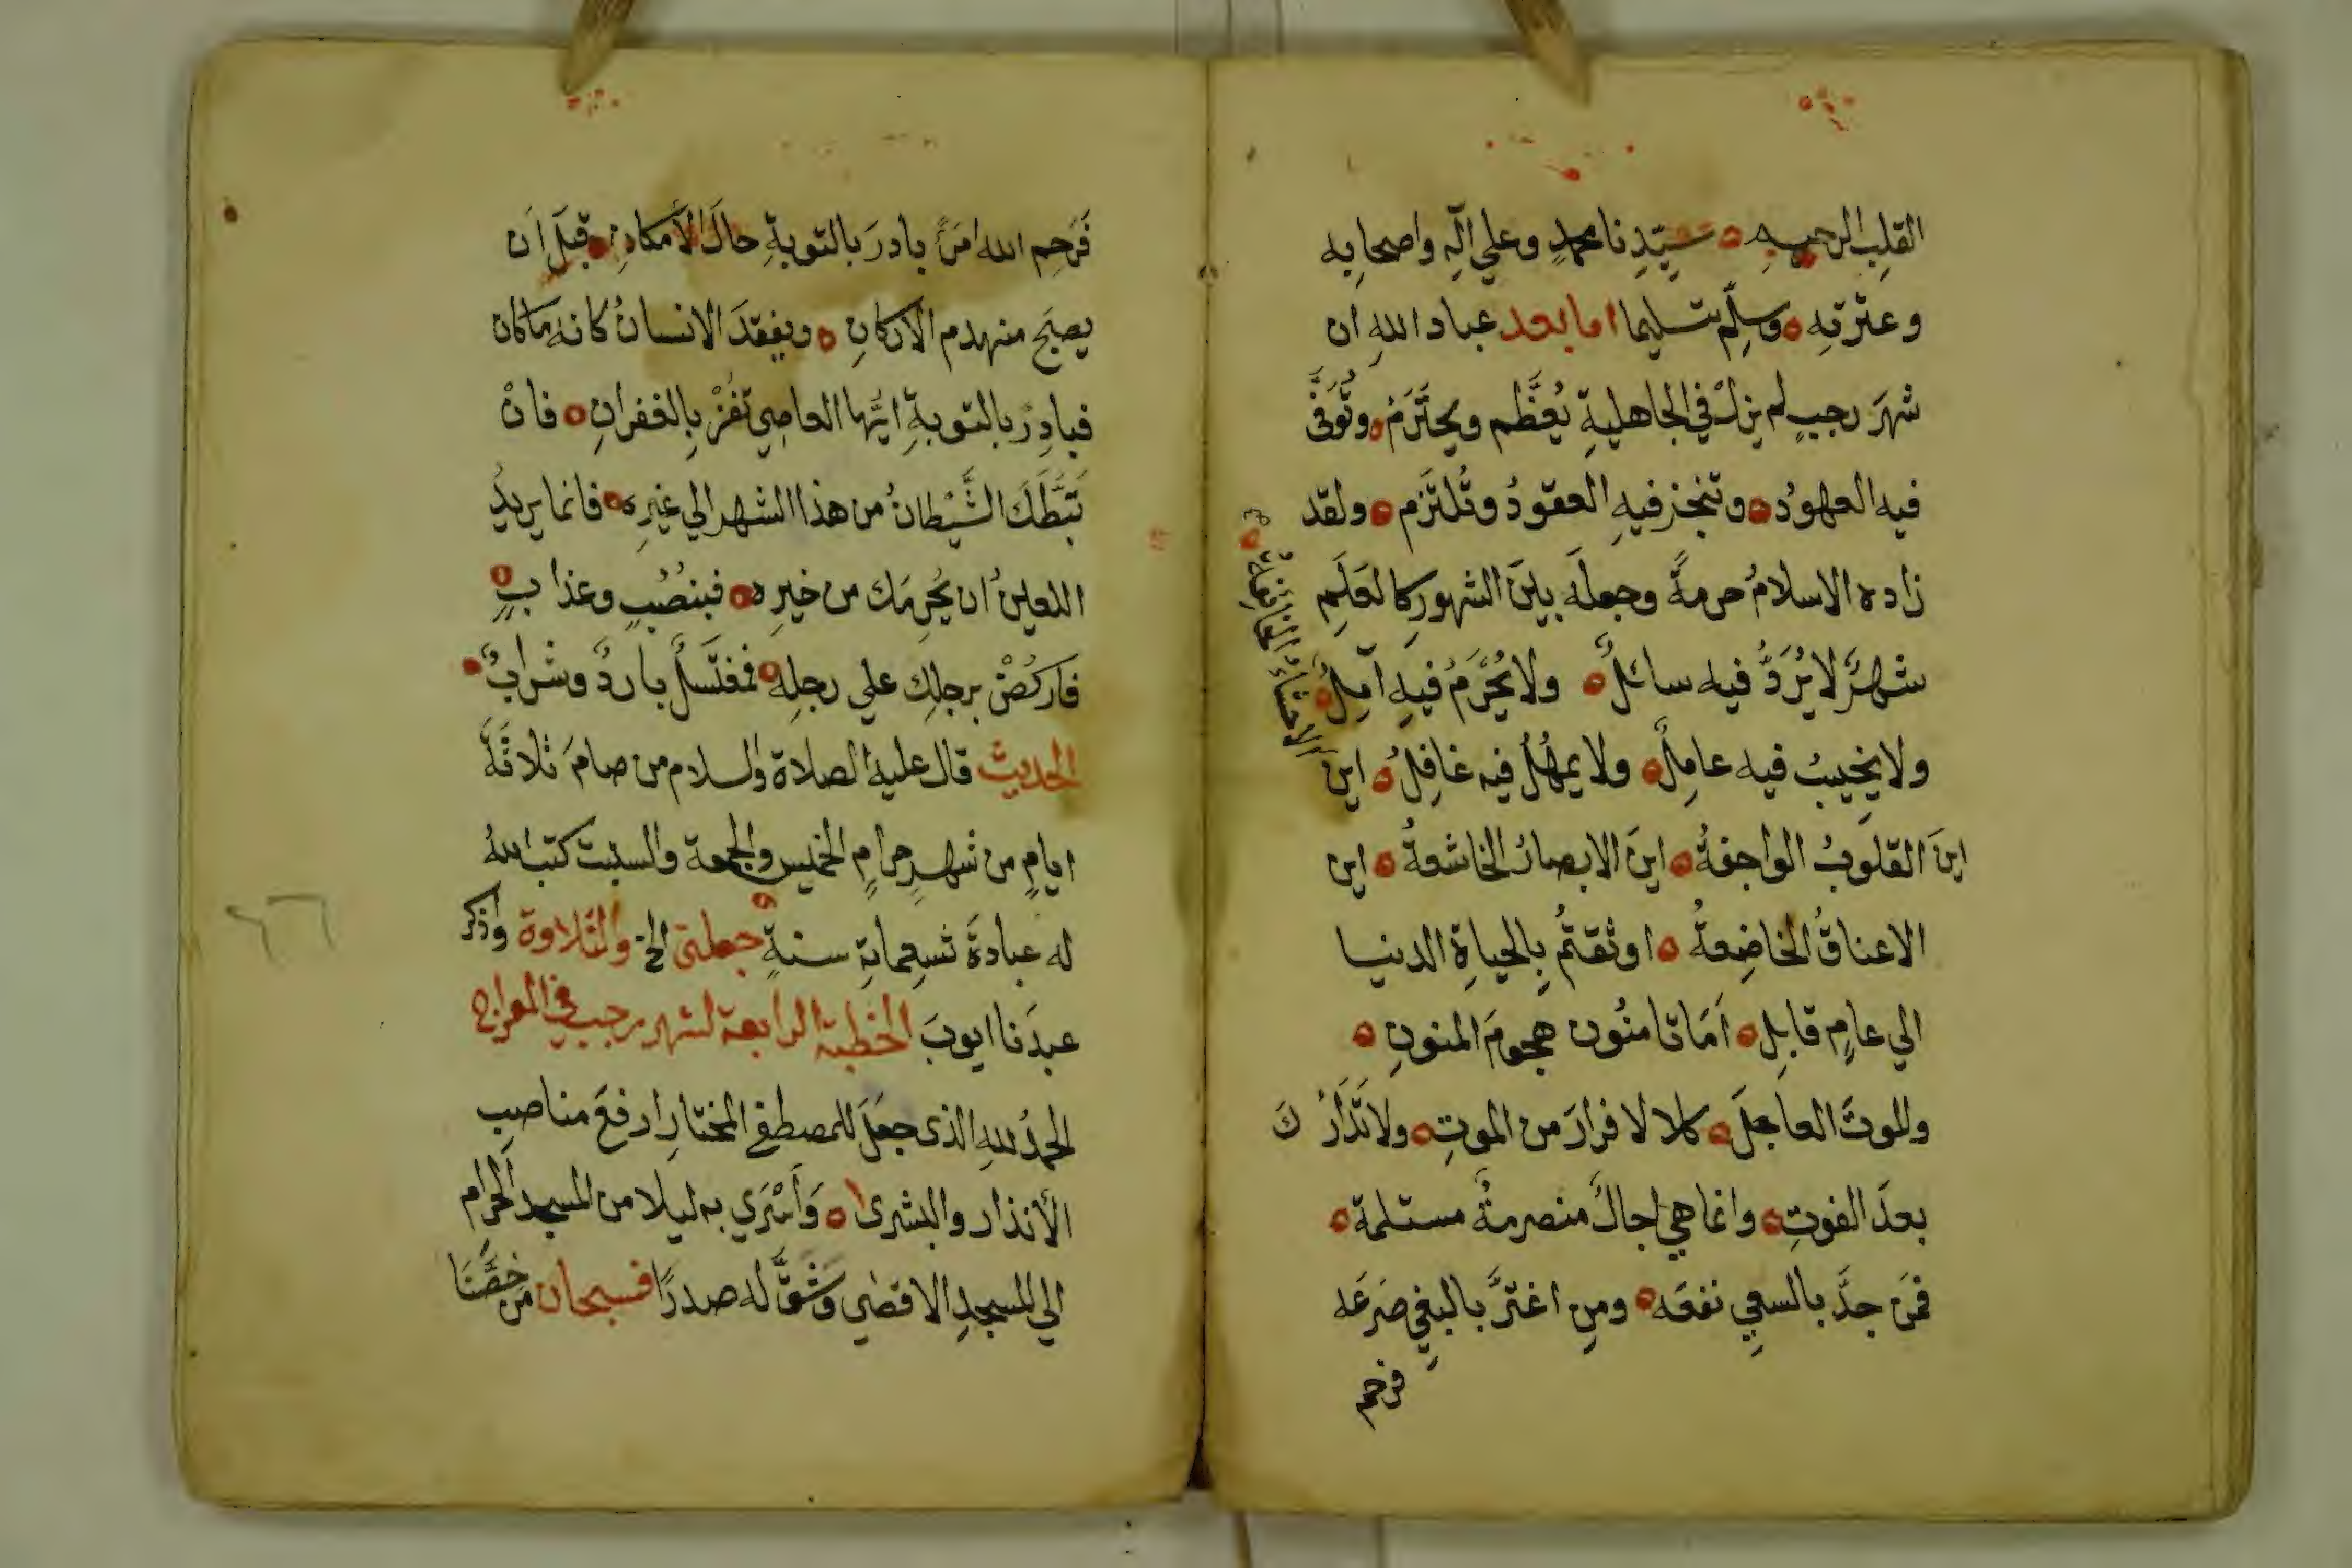 القلب الرحيم ه سيّدنا محمدٍ وعلي آلِه واصحابِه
وعترتِه ه وسلِّم تسليما اما بعد عباد اللهِ ان
شهرَ رجبٍ لم يزلْ في الجاهليةِ يُعظَّم ويحتَرَم ه وتُوَفَّى
فيه العهودُ ه وتنجز فيهِ العقودُ وتُلتَزم ه ولقد
زاده الاسلامُ حرمةً وجعلَه بينَ الشهورِ كالعَلَمِ
شهرٌ لا يُرَدُّ فيه سائلٌ ه ولا يُحْرَمُ فيهِ آمِلٌ ه
ولا يخيبُ فيه عامِلٌ ه ولا يمهلُ فيه غافِلُ ه اين
الاحشاءُ
اينَ القلوبُ الواجفةُ ه اينَ الابصارُ الخاشعةُ ه اين
الاعناقُ الخاضِعةُ ه اوثقتُم بِالحياةِ الدنيا
الي عامٍ قابِلِ ه اَمَا تامنُون هجومَ المنونِ ه
والموتَ العاجلَ ه كلا لا فرارَ من الموتِ ه ولا تَدَارُكَ
بعدَ الفوتِ ه وانما هي اجالٌ منصرمةٌ مستلمة ه
فمَن جدَّ بالسعيِ نفعَه ه ومنِ اغترَّ بالبغيِ صَرَعَه
فرحم
فَرَحِم الله امرَءً بادرَ بالتوبةِ حالَ الأمكانِ ه قبلَ اَن
يصبَح منهدم الاركانِ ه ويفقدَ الانسانُ كانه ما كان
فبادِرْ بالتوبةِ ايُّها العاصِي تفُزْ بِالغفرانِ ه فانْ
ثبَّطَكَ الشَّيْطانُ من هذا الشهر الي غيرِه ه فانما يريدُ
اللعينُ ان يُحرِمَك من خيرِه ه فبنُصُبٍ وعذابٍ ه
فاركُضْ برجلِك علي رجلِه ه فمغتَسلٌ باردٌ وشرابٌ ه
الحديث قال عليه الصلاة والسلام من صامَ ثلاثَةَ
ايامٍ من شهرٍ حرامٍ الخميس والجمعة والسبت كتب اللهُ
له عبادةَ تسعماية سنةٍ جعلني الخ والتلاوة واذكر
عبدَنا ايوبَ الخطبة الرابعة لشهر رجب في المعراج
الحمدُ للهِ الذى جعَلَ للمصطفى المختارِ ارفعَ مناصبِ
الأنذار والبشرى ه وَأَسْرَي به ليلا من المسجد الحرام
الي المسجدِ الاقصٰي وَشقَّ له صدرًا فسبحان مَن خصَّنَا